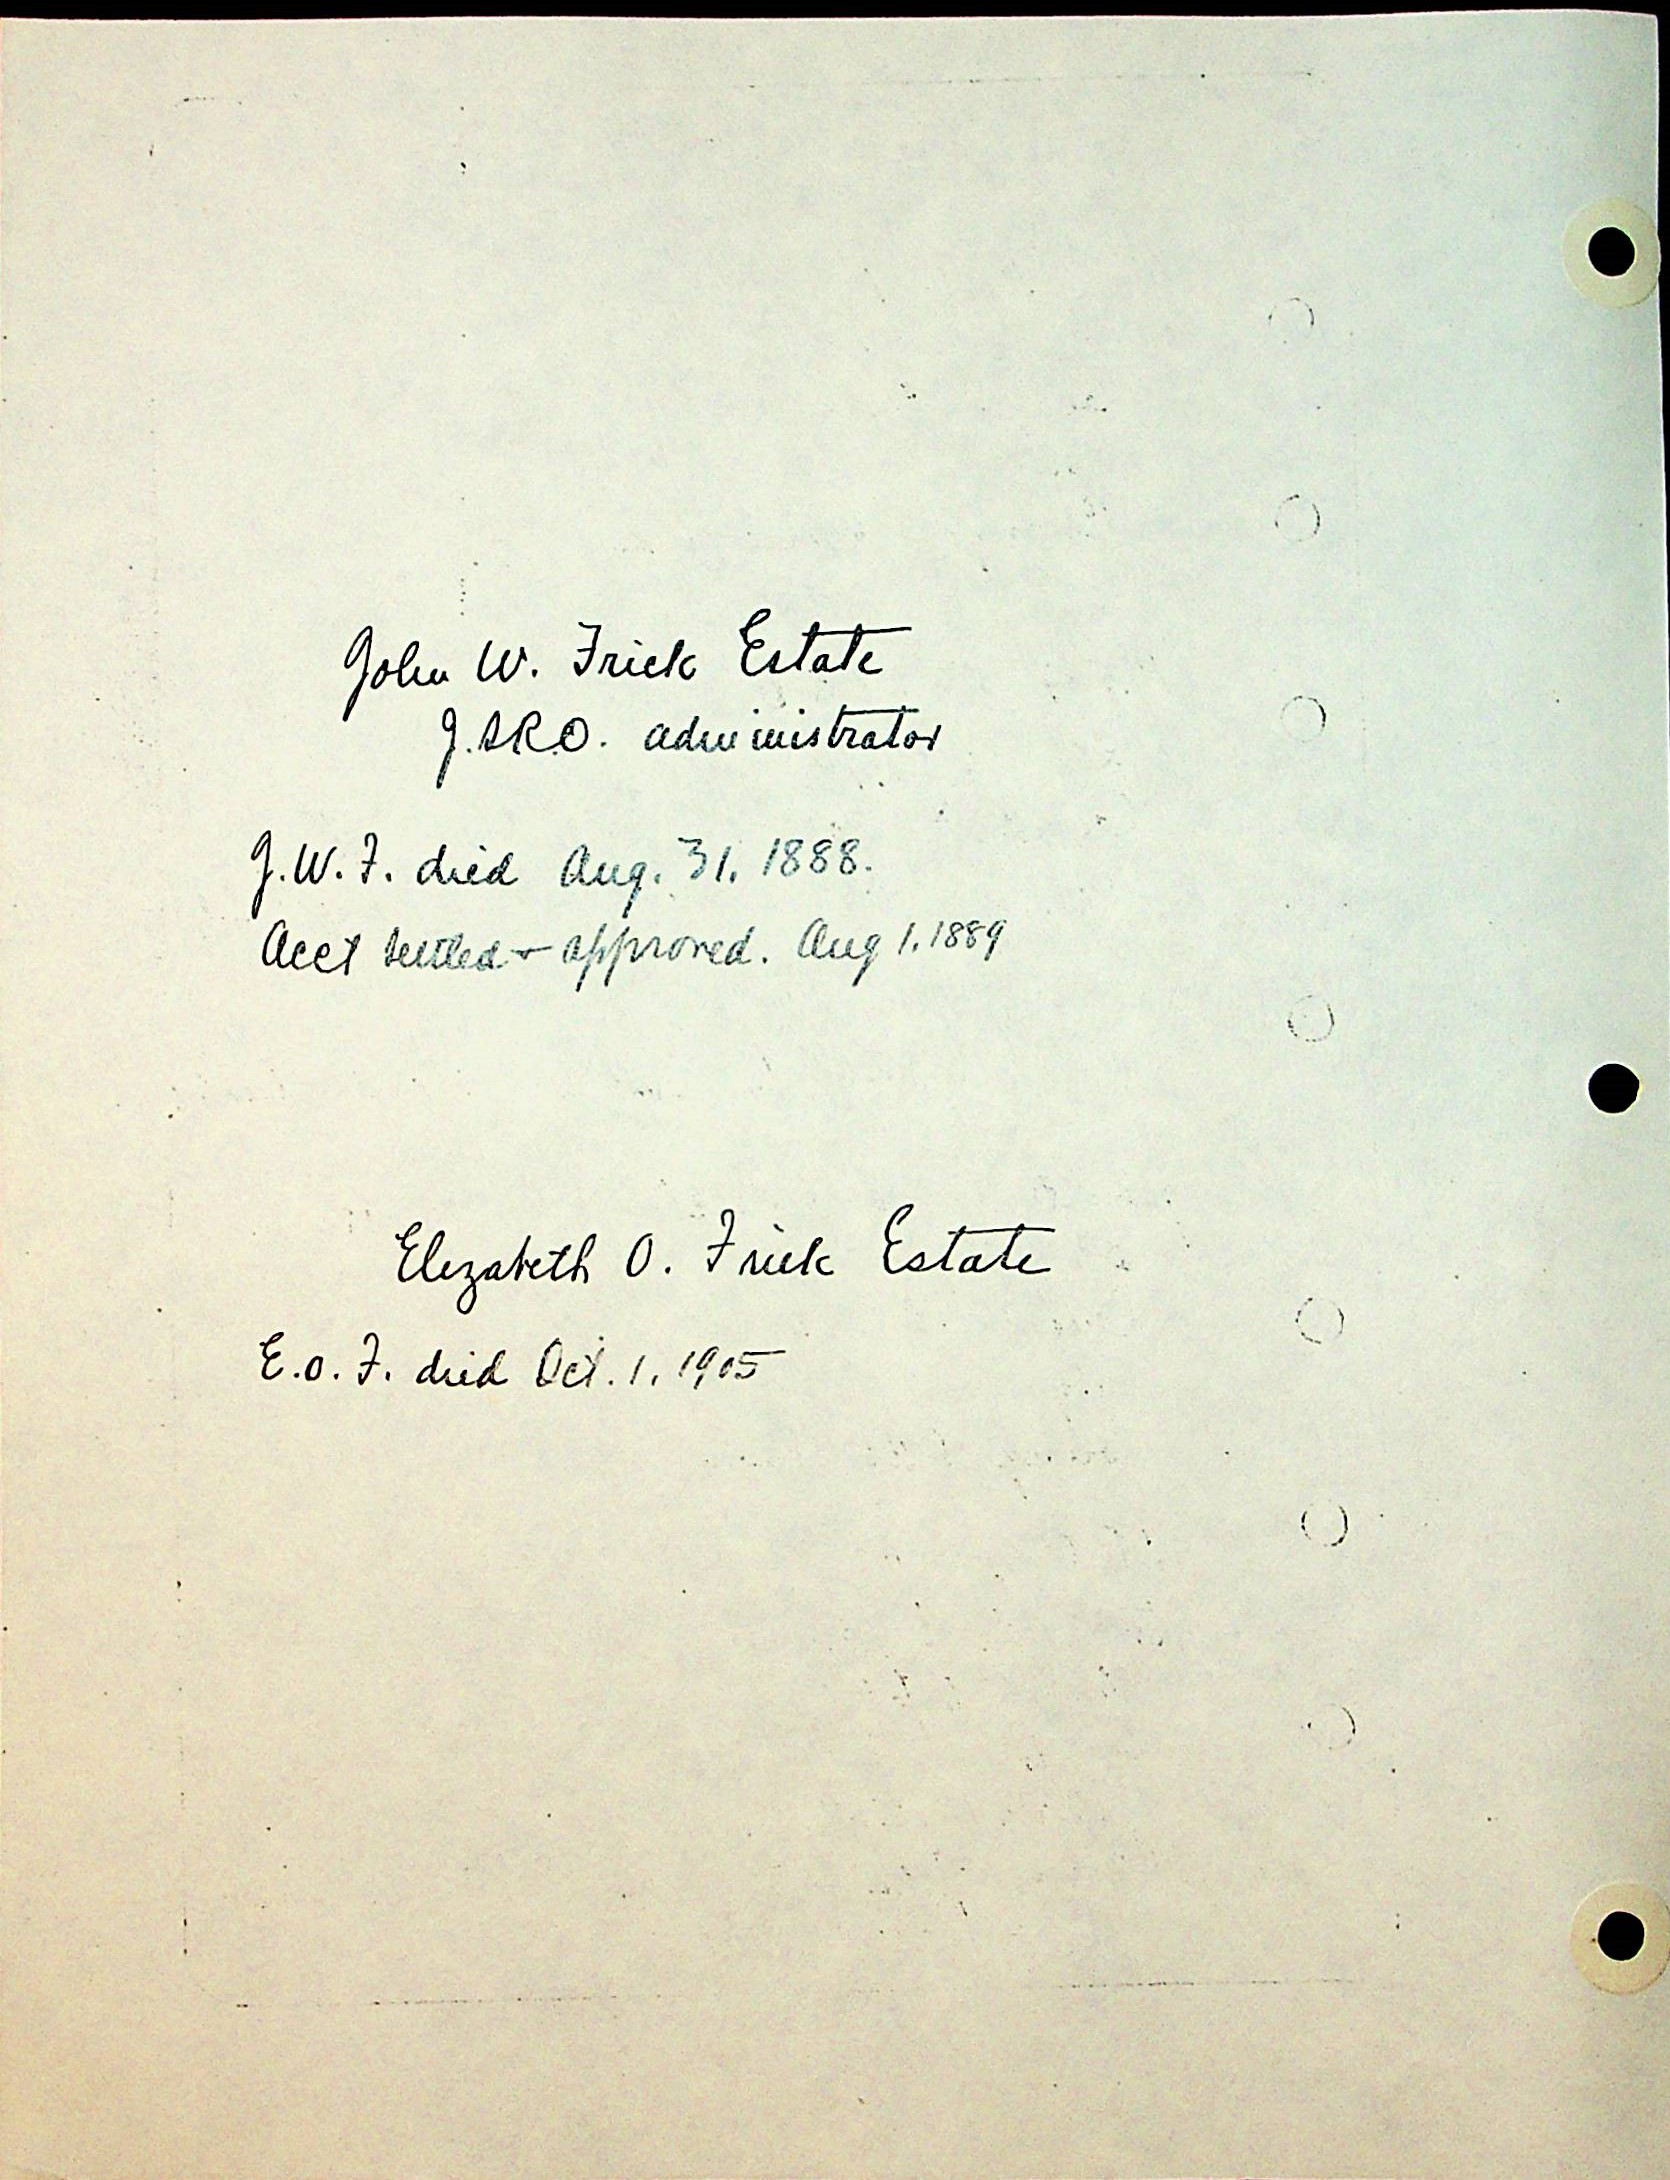 John W. Frick Estate
J.S.R.O. administrator
J.W.F. died Aug. 31, 1888.
Acct settled + approved. Aug 1, 1889
Elizabeth O. Frick Estate
E.O.F. died Oct. 1, 1905